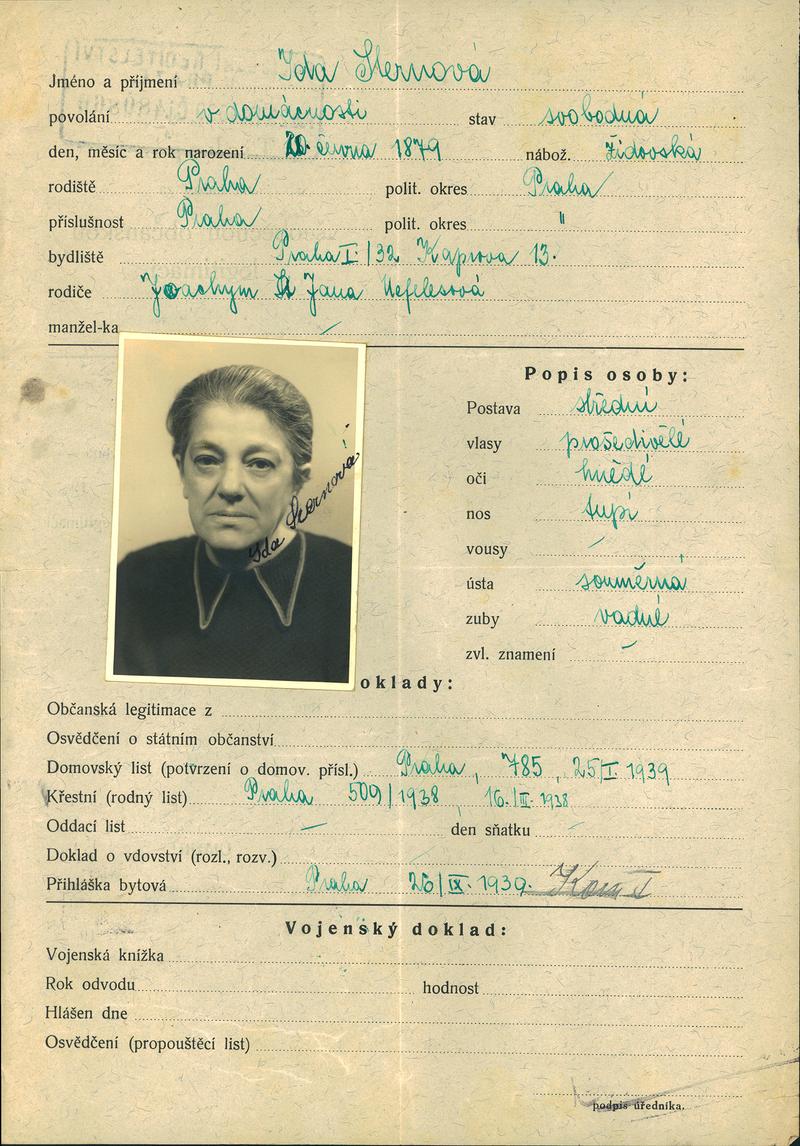 Jméno a příjmení Ida Sternová
povolání v domácnosti stav svobodná
den, měsíc a rok narození června 1879 nábož. židovská
rodiště Praha polit. okres Praha
příslušnost Praha polit. okres "
bydliště Praha I/32 Kaprova 13.
rodiče Joachym Jana
manžel-ka /
Popis osoby:
Postava střední
vlasy prošedivělé
oči hnědé
nos tupí
vousy /
ústa souměrná
zuby vadné
zvl. znamení /
Ida Sternová
oklady:
Občanská legitimace z
Osvědčení o státním občanství
Domovský list (potvrzení o domov. přísl.) Praha, 785, 25/I 1939
Křestní (rodný list) Praha 509/1938 16./III. 1938
Oddací list / den sňatku /
Doklad o vdovství (rozl., rozv.) /
Přihláška bytová Praha 26/IX. 1939.
Vojenský doklad:
Vojenská knížka
Rok odvodu hodnost
Hlášen dne
Osvědčení (propouštěcí list)
podpis úředníka.